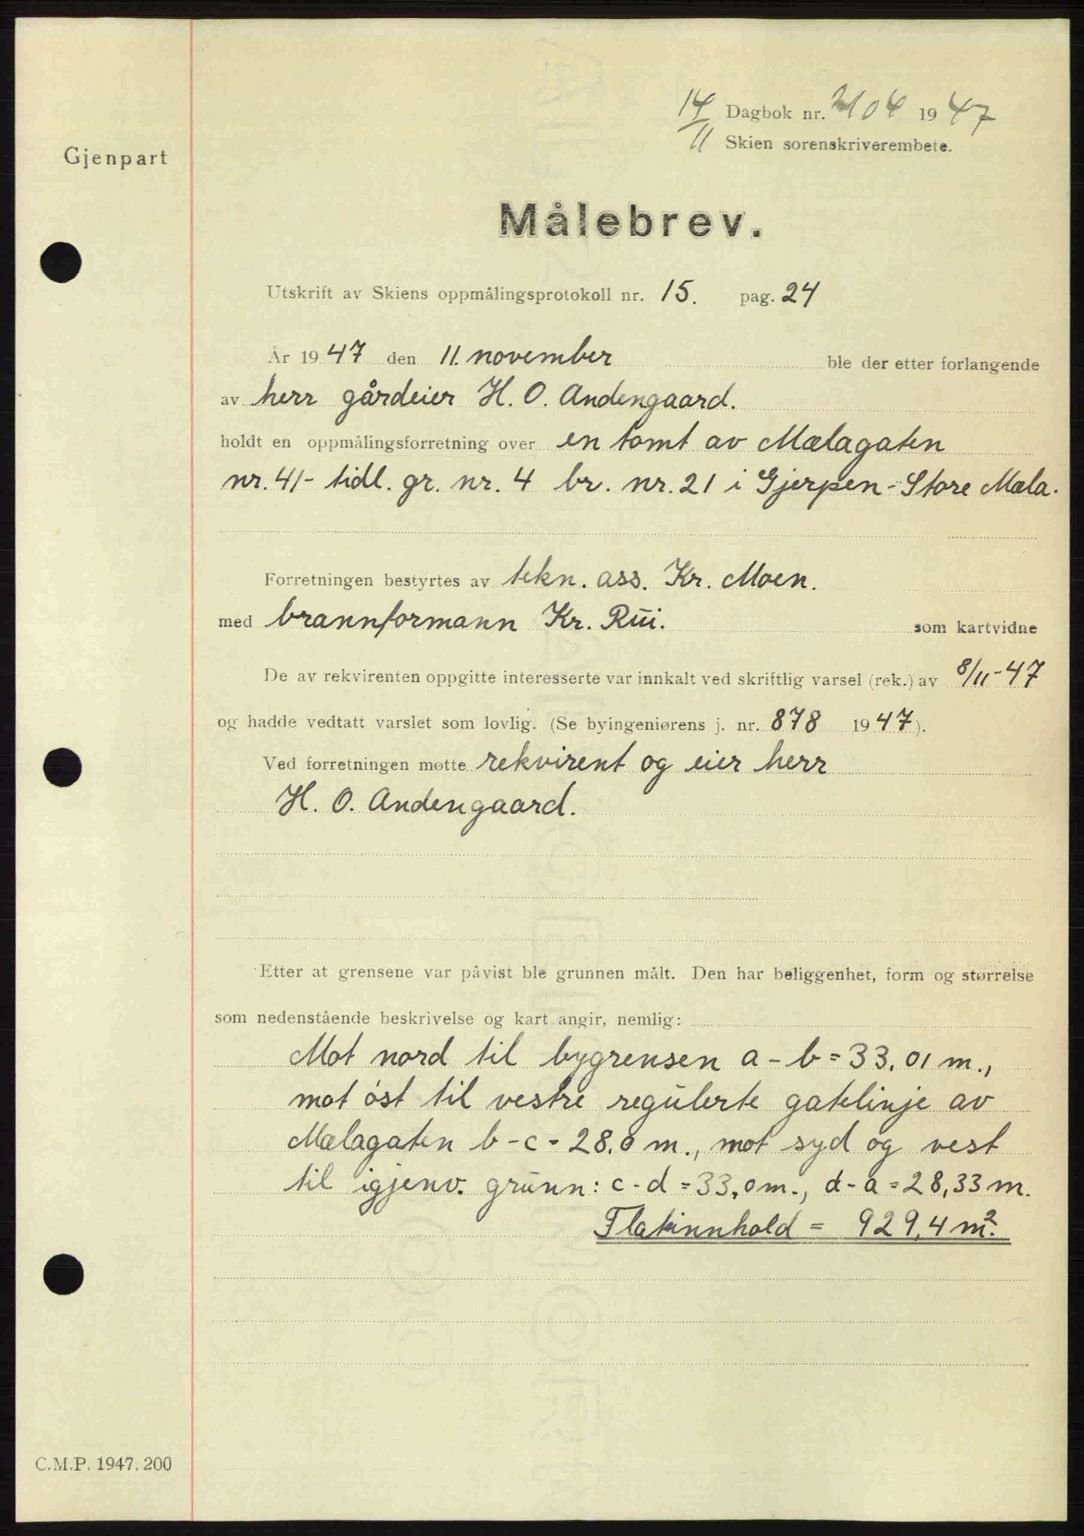 14/11 Dagbok nr. 2104 1947
Skien sorenskriverembete.
Gjenpart
Målebrev.
Utskrift av Skiens oppmålingsprotokoll nr. 15. pag. 24
År 1947 den 11. november ble der etter forlangende
av herr gårdeier H. O. Andengaard.
holdt en oppmålingsforretning over en tomt av Mælagaten
nr. 41 - tidl. gr. nr. 4 br. nr. 21 i Gjerpen - Store Mæla.
Forretningen bestyrtes av tekn. ass. Kr. Moen.
med brannformann Kr. Rui. som kartvidne
De av rekvirenten oppgitte interesserte var innkalt ved skriftlig varsel (rek.) av 8/11-47
og hadde vedtatt varslet som lovlig. (Se byingeniørens j. nr. 878 1947).
Ved forretningen møtte rekvirent og eier herr
H. O. Andengaard.
Etter at grensene var påvist ble grunnen målt. Den har beliggenhet, form og størrelse
som nedenstående beskrivelse og kart angir, nemlig:
Mot nord til bygrensen a - b = 33,01 m.,
mot øst til vestre regulerte gatelinje av
Mælagaten b - c = 28.0 m., mot syd og vest
til igjenv. grunn: c - d = 33,0 m., d - a = 28,33 m.
Flateinnhold = 929,4 m².
C.M.P. 1947. 200